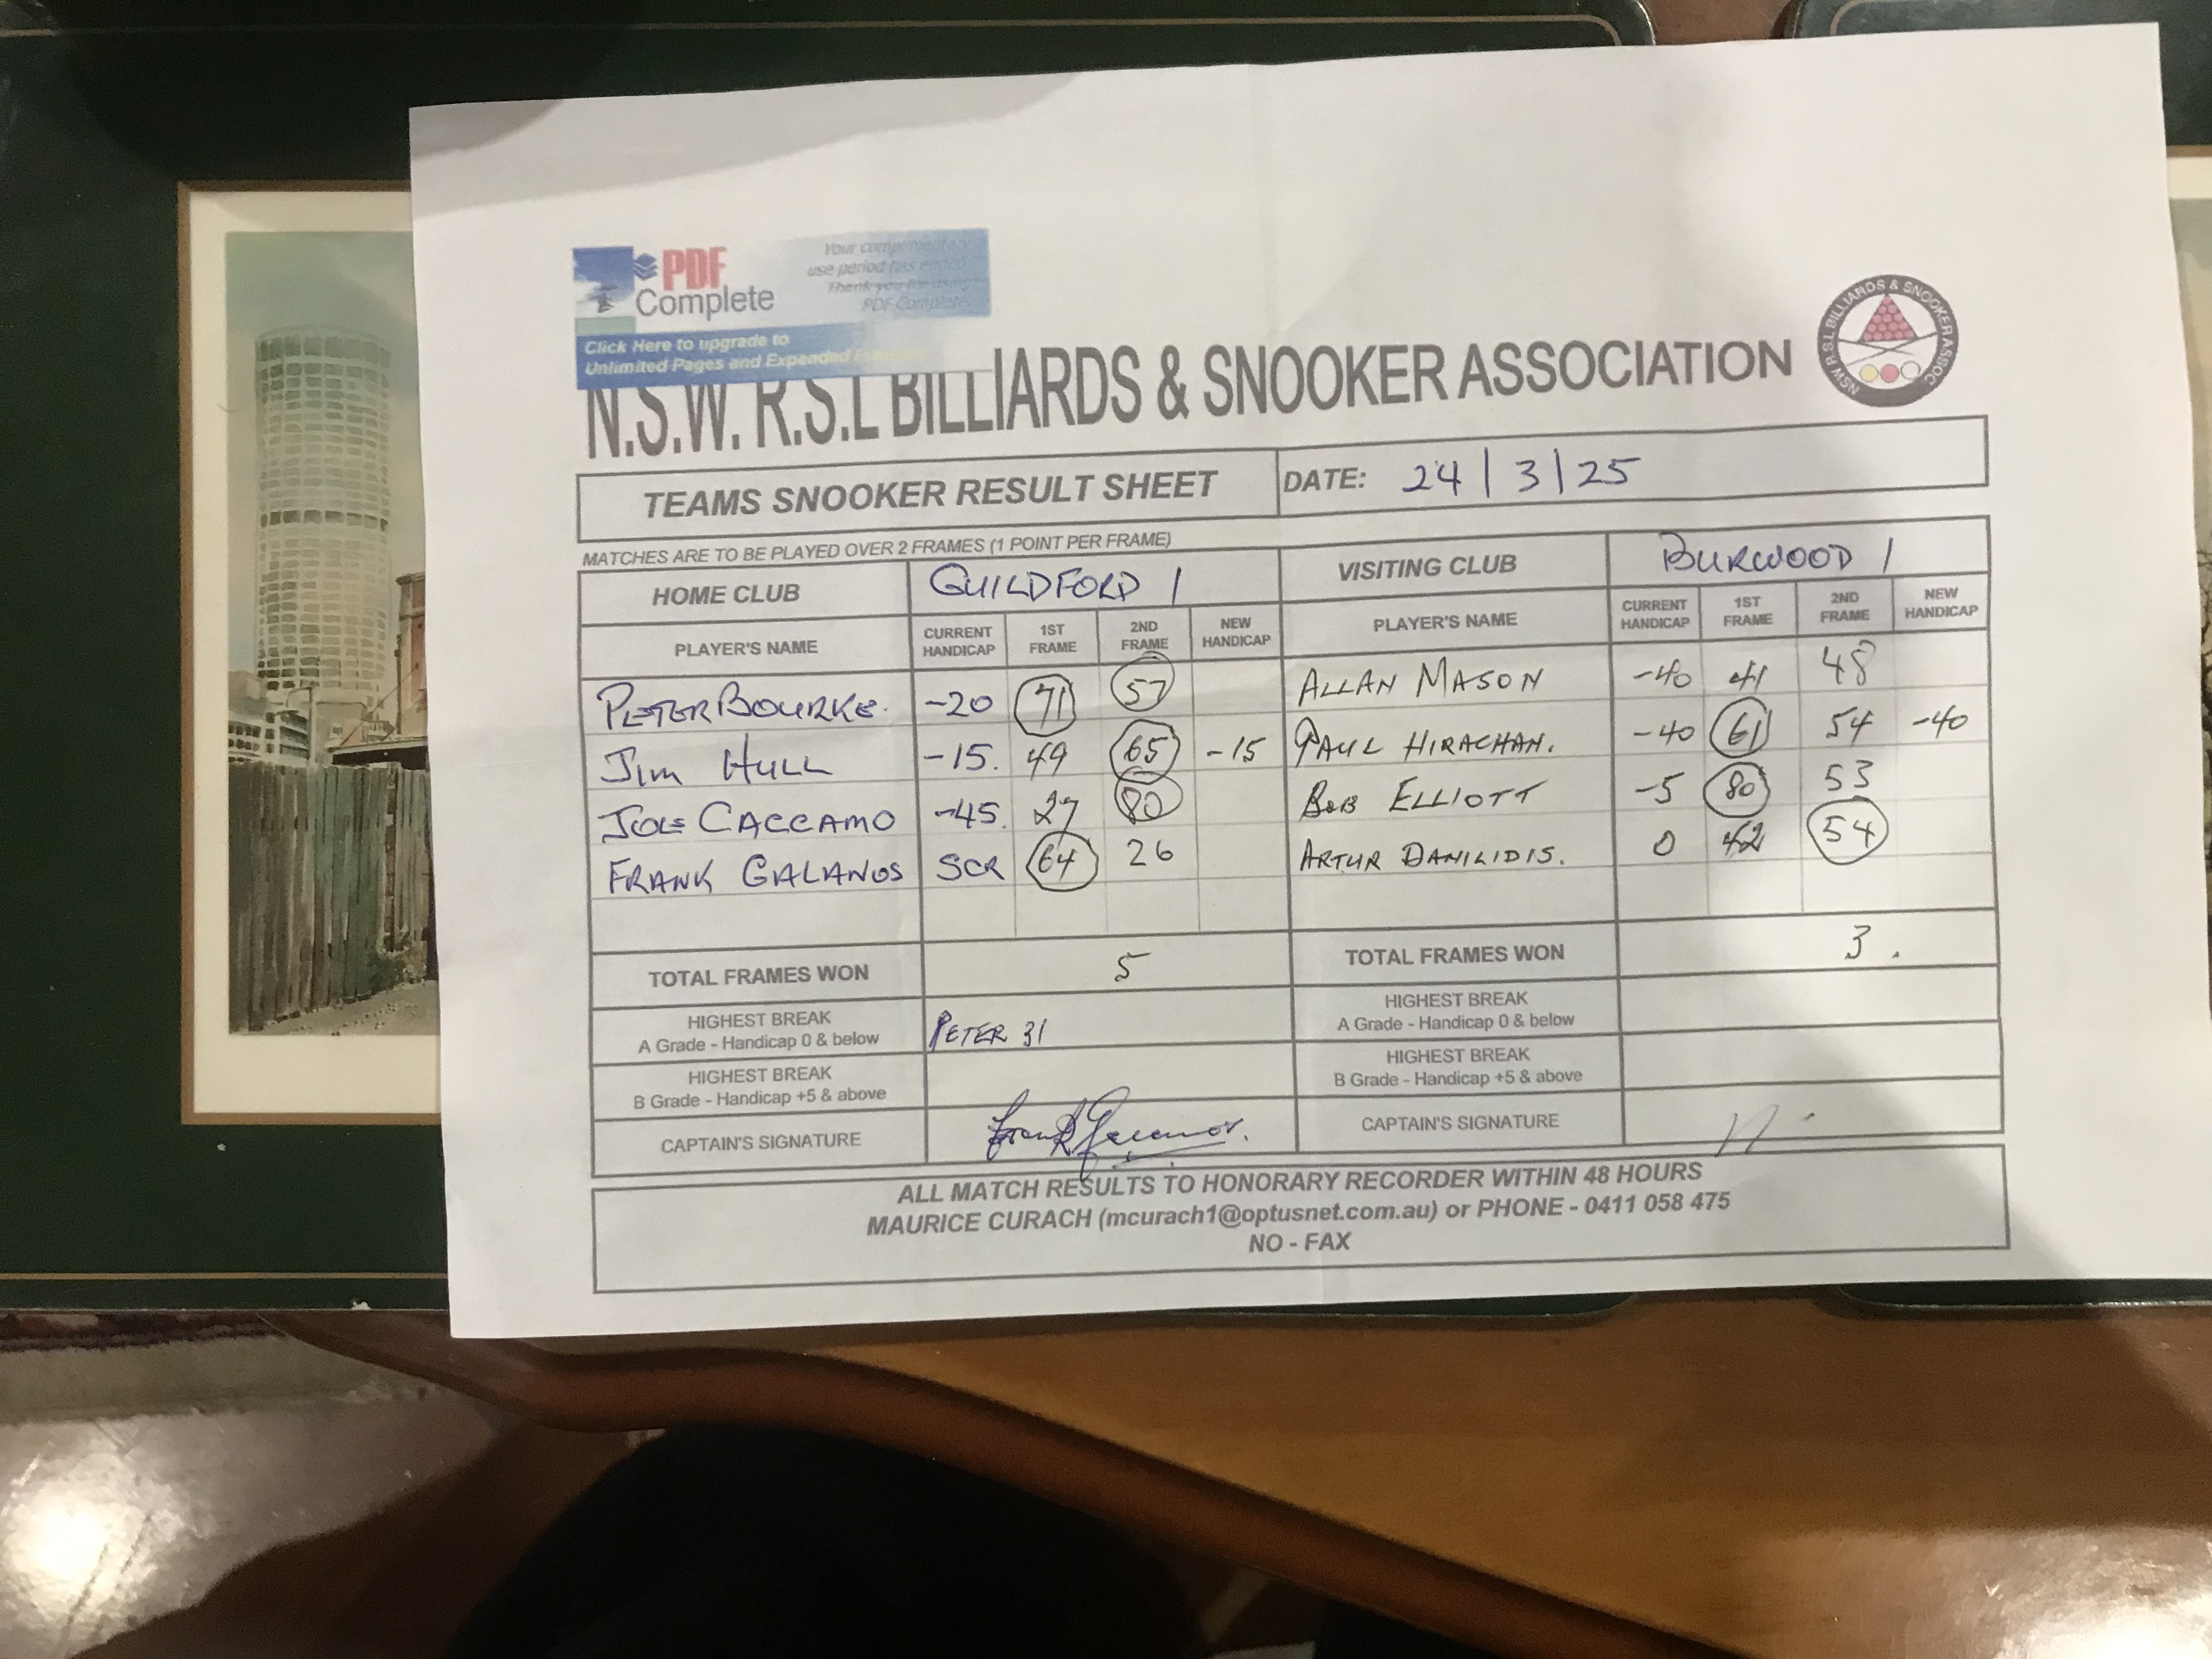 PDF
Complete
Your complimentary
use period has ended.
Thank you for using
PDF Complete.
Click Here to upgrade to
Unlimited Pages and Expanded
N.S.W. R.S.L BILLIARDS & SNOOKER ASSOCIATION
NSW R.S.L BILLIARDS & SNOOKER ASSOC.
TEAMS SNOOKER RESULT SHEET DATE: 24/3/25
MATCHES ARE TO BE PLAYED OVER 2 FRAMES (1 POINT PER FRAME)
HOME CLUB GUILDFORD 1 VISITING CLUB BURWOOD 1
PLAYER'S NAME CURRENT HANDICAP 1ST FRAME 2ND FRAME NEW HANDICAP PLAYER'S NAME CURRENT HANDICAP 1ST FRAME 2ND FRAME NEW HANDICAP
PETER BOURKE. -20 71 57 ALLAN MASON -40 41 48
JIM HULL -15. 49 65 -15 PAUL HIRACHAN. -40 61 54 -40
JOE CACCAMO -45. 27 80 BOB ELLIOTT -5 80 53
FRANK GALANOS SCR 64 26 ARTUR DANILIDIS. 0 42 54
TOTAL FRAMES WON 5 TOTAL FRAMES WON 3.
HIGHEST BREAK
A Grade - Handicap 0 & below PETER 31
HIGHEST BREAK
A Grade - Handicap 0 & below
HIGHEST BREAK
B Grade - Handicap +5 & above
HIGHEST BREAK
B Grade - Handicap +5 & above
CAPTAIN'S SIGNATURE CAPTAIN'S SIGNATURE
ALL MATCH RESULTS TO HONORARY RECORDER WITHIN 48 HOURS
MAURICE CURACH (mcurach1@optusnet.com.au) or PHONE - 0411 058 475
NO - FAX